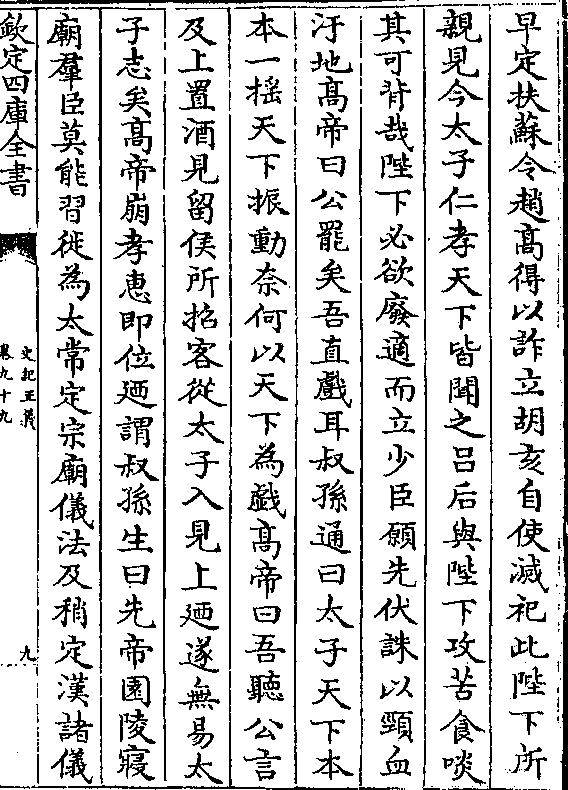 早定扶蘇令趙髙得以詐立胡亥自使滅祀此陛下所
親見今太子仁孝天下皆聞之吕后與陛下攻苦食啖
其可背哉陛下必欲廢適而立少臣願先伏誅以頸血
汙地髙帝曰公罷矣吾直戲耳叔孫通曰太子天下本
本一揺天下振動奈何以天下為戯髙帝曰吾聽公言
及上置酒見留侯所招客從太子入見上廼遂無易太
子志矣髙帝崩孝惠即位廼謂叔孫生曰先帝園陵寢
廟羣臣莫能習徙為太常定宗廟儀法及稍定漢諸儀
欽定四庫全書
史記正義
卷九十九
九